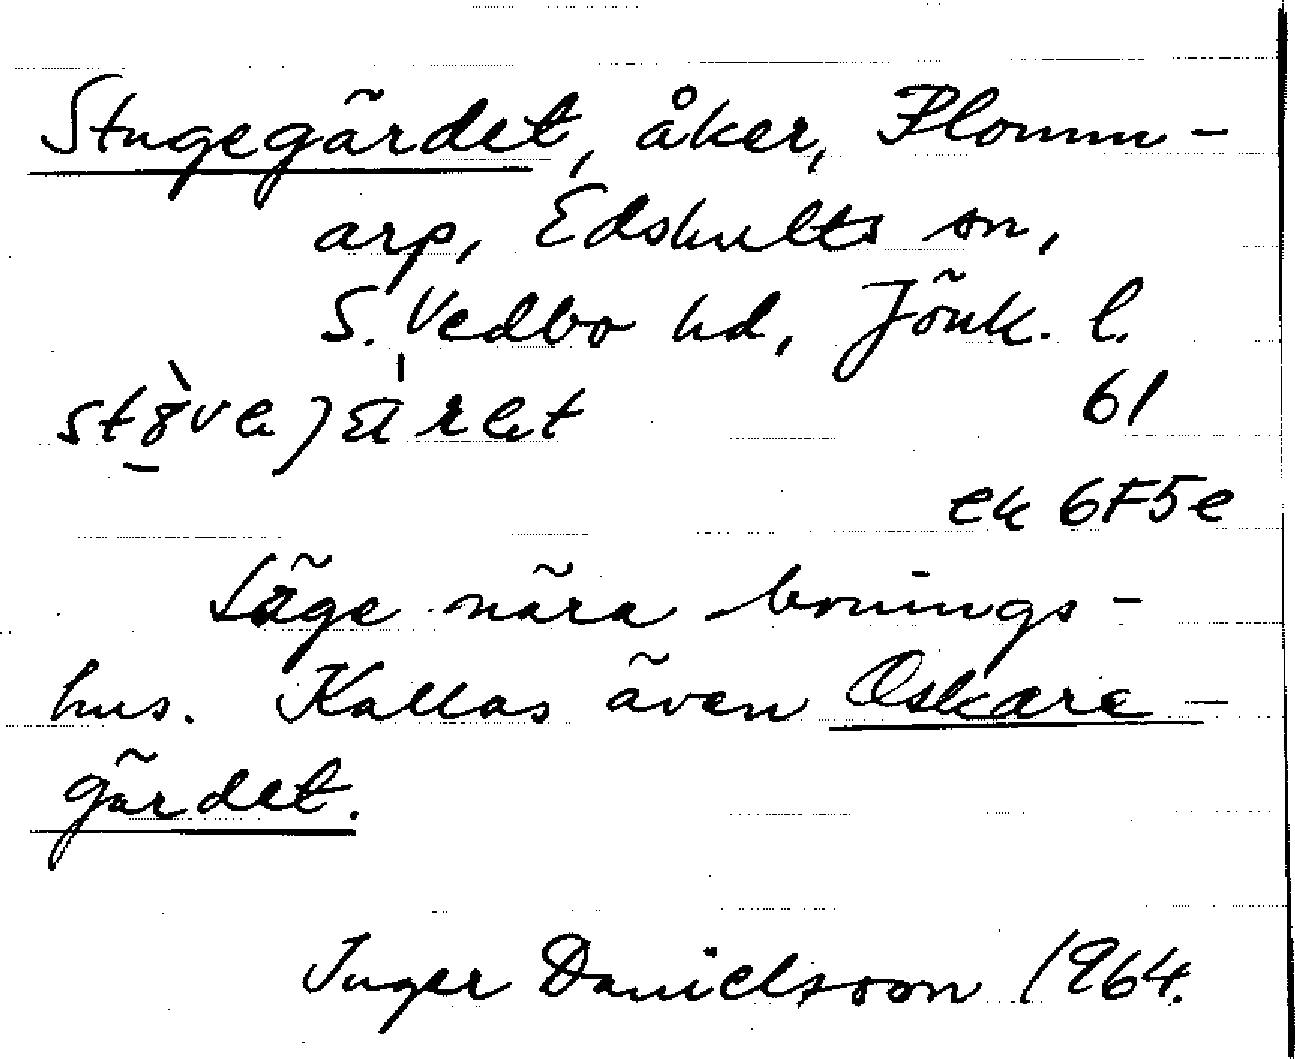 Stugegärdet, åker, Plomm-
arp, Edshults sn,
S. Vedbo hd, Jönk. l.
61
ek 6F5e
Läge nära bonings-
hus. Kallas även Oskare-
gärdet.
Inger Danielsson 1964.